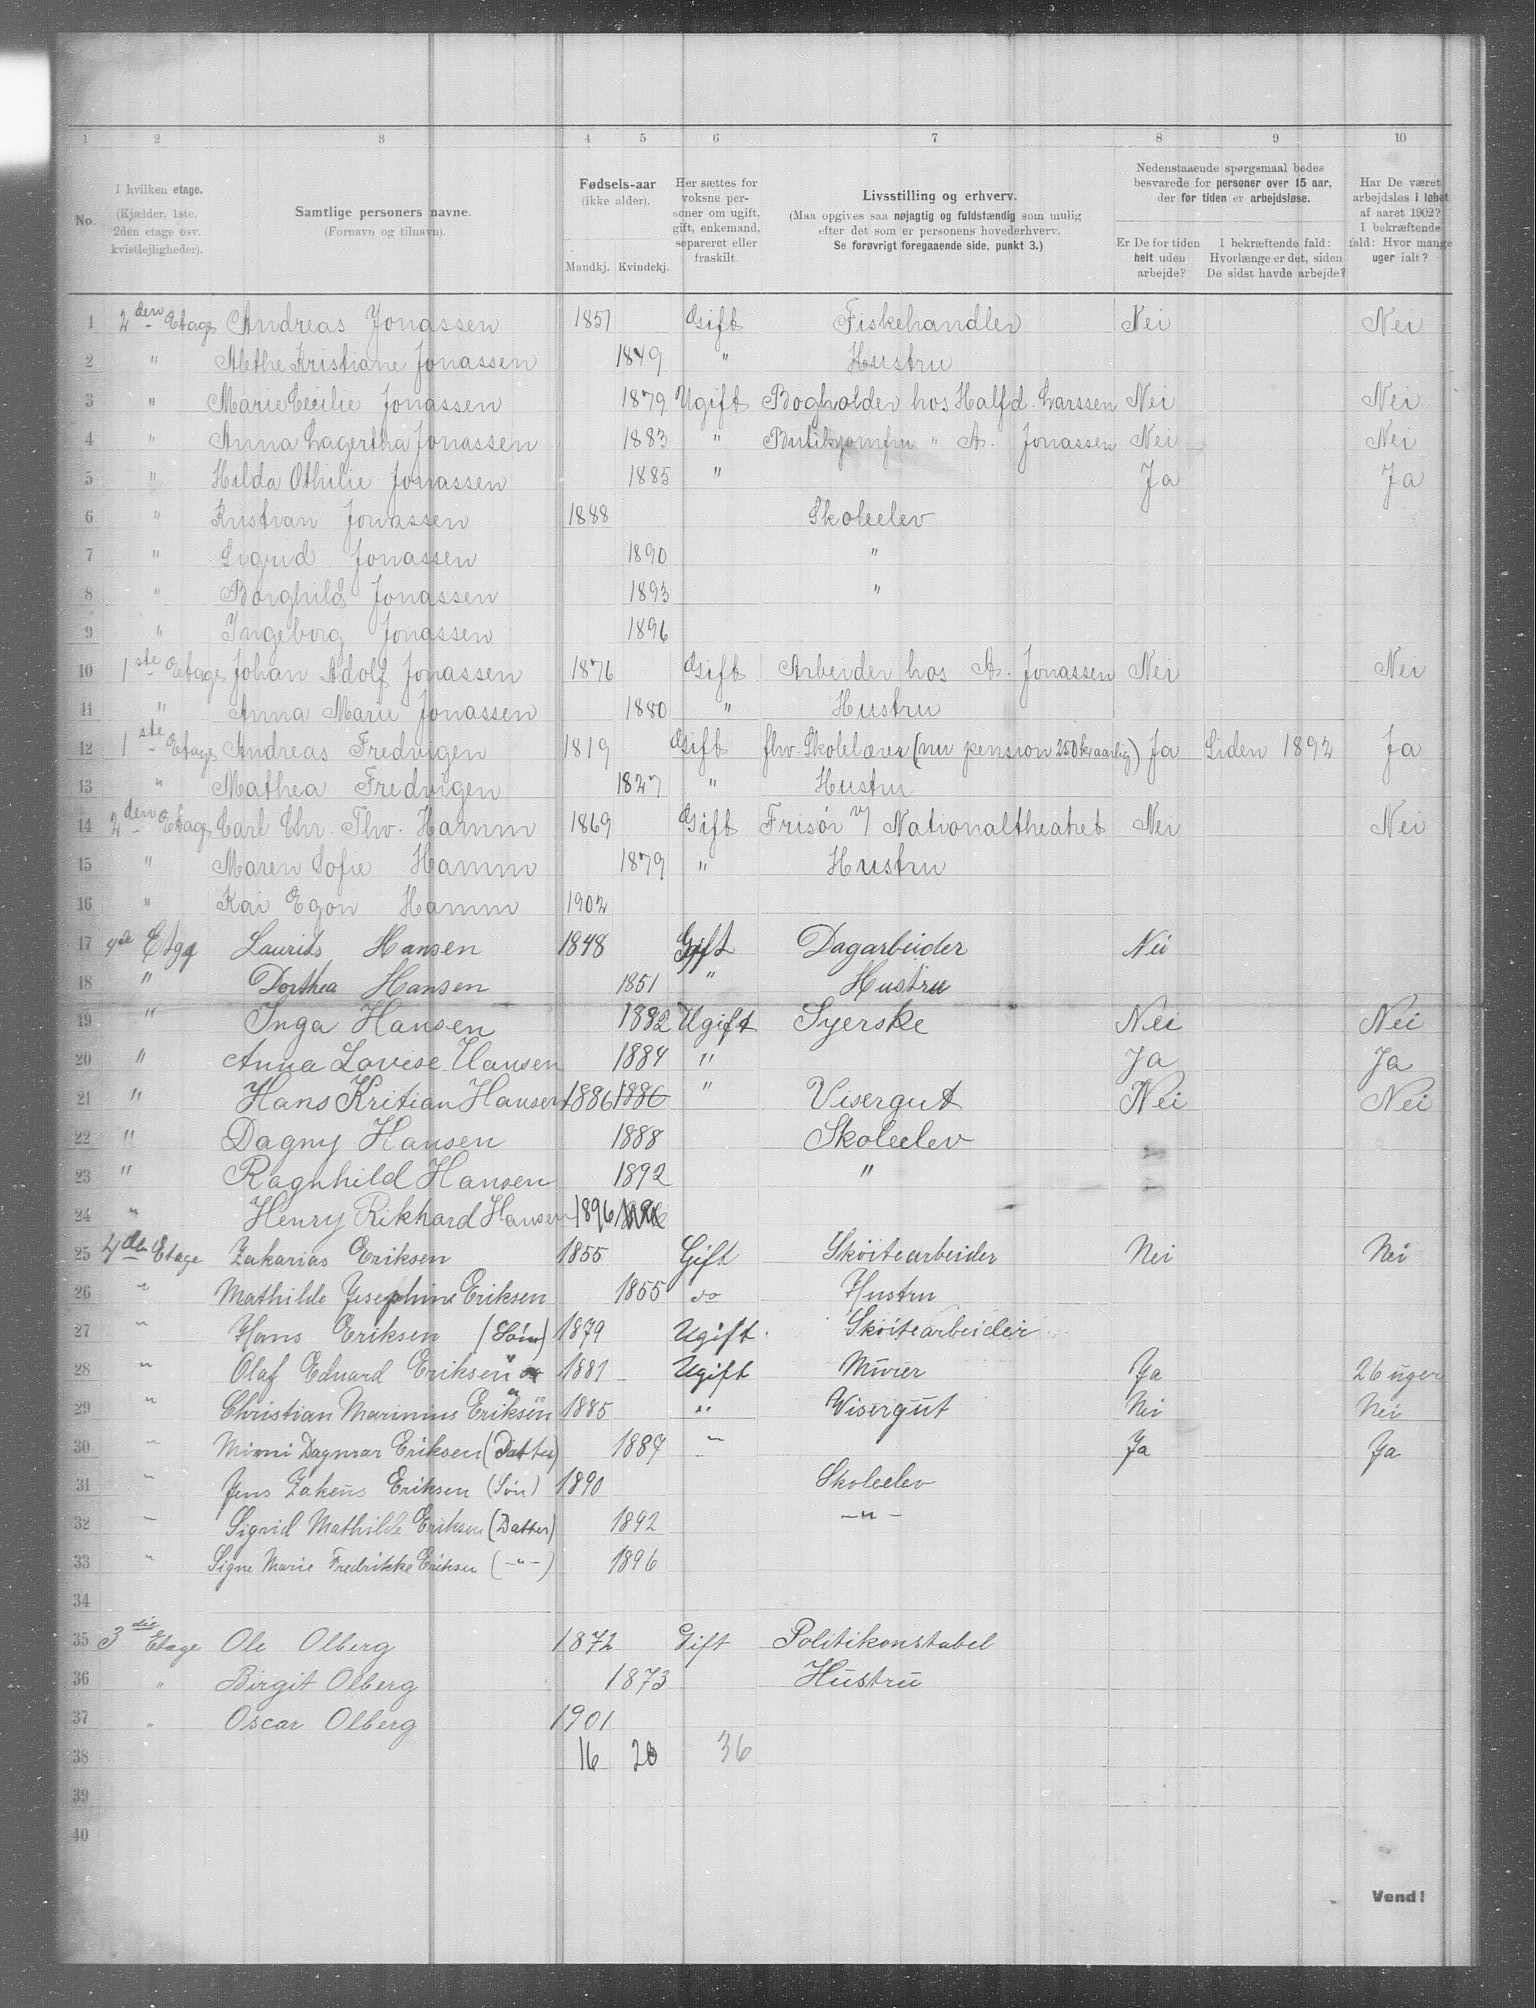 1 2 3 4 5 6 7 8 9 10
No.
I hvilken etage.
(Kjælder, 1ste, 2den etage osv. kvistlejligheder).
Samtlige personers navne.
(Fornavn og tilnavn).
Fødsels-aar
(ikke alder).
Mandkj. Kvindekj.
Her sættes for voksne personer om ugift, gift, enkemand, separeret eller fraskilt.
Livsstilling og erhverv.
(Maa opgives saa nøjagtig og fuldstændig som mulig
efter det som er personens hovederhverv.
Se forøvrigt foregaaende side, punkt 3.)
Nedenstaaende spørgsmaal bedes
besvarede for personer over 15 aar,
der for tiden er arbejdsløse.
Er De for tiden helt uden arbejde?
I bekræftende fald: Hvorlænge er det, siden De sidst havde arbejde?
Har De været arbejdsløs i løbet af aaret 1902? I bekræftende fald: Hvor mange uger ialt?
1 2den Etage Andreas Jonassen 1851 Gift Fiskehandler Nei Nei
2 " Alethe Kristiane Jonassen 1849 " Hustru
3 " Marie Cecilie Jonassen 1879 Ugift Bogholder hos Halfd. Larssen Nei Nei
4 " Anna Lagertha Jonassen 1883 " Butikjomfru " A. Jonassen Nei Nei
5 " Hilda Othilie Jonassen 1885 " Ja Ja
6 " Kristian Jonassen 1888 Skoleelev
7 " Sigrid Jonassen 1890 "
8 " Borghild Jonassen 1893 "
9 " Ingeborg Jonassen 1896
10 1ste Etage Johan Adolf Jonassen 1876 Gift Arbeider hos A. Jonassen Nei Nei
11 " Anna Marie Jonassen 1880 " Hustru
12 1ste Etage Andreas Fredvigen 1819 Gift fhv. Skolelærer (nu pension 250 kr aarlig) Ja Siden 1892 Ja
13 " Mathea Fredvigen 1827 " Hustru
14 2den Etage Carl Chr. Thv. Hamm 1869 Gift Frisør v/ Nationaltheatret Nei Nei
15 " Maren Sofie Hamm 1879 " Hustru
16 " Kai Egon Hamm 1902
17 4de Etge Laurits Hansen 1848 Gift Dagarbeider Nei
18 " Dorthea Hansen 1851 " Hustru
19 " Inga Hansen 1882 Ugift Syerske Nei Nei
20 " Anna Lovise Hansen 1884 " Ja Ja
21 " Hans Kritian Hansen 1886 1886 " Visergut Nei Nei
22 " Dagny Hansen 1888 Skoleelev
23 " Ragnhild Hansen 1892 "
24 " Henry Rikhard Hansen 1896
25 4de Etage Zakarias Eriksen 1855 Gift Skøitearbeider Nei Nei
26 " Mathilde Josephine Eriksen 1855 do Hustru
27 " Hans Eriksen (Søn) 1879 Ugift Skøitearbeider
28 " Olaf Eduard Eriksen " 1881 Ugift Murer Ja 26 uger
29 " Christian Marinius Eriksen 1885 " Visergut Nei Nei
30 " Mimi Dagmar Eriksen (Datter) 1887 " Ja Ja
31 " Jens Zakeus Eriksen (Søn) 1890 Skoleelev
32 " Sigrid Mathilde Eriksen (Datter) 1892 - " -
33 " Signe Marie Fredrikke Eriksen (-"-) 1896
34
35 3die Etage Ole Olberg 1872 Gift Politikonstabel
36 " Birgit Olberg 1873 Hustru
37 " Oscar Olberg 1901
38 16 20 36
39
40
Vend!